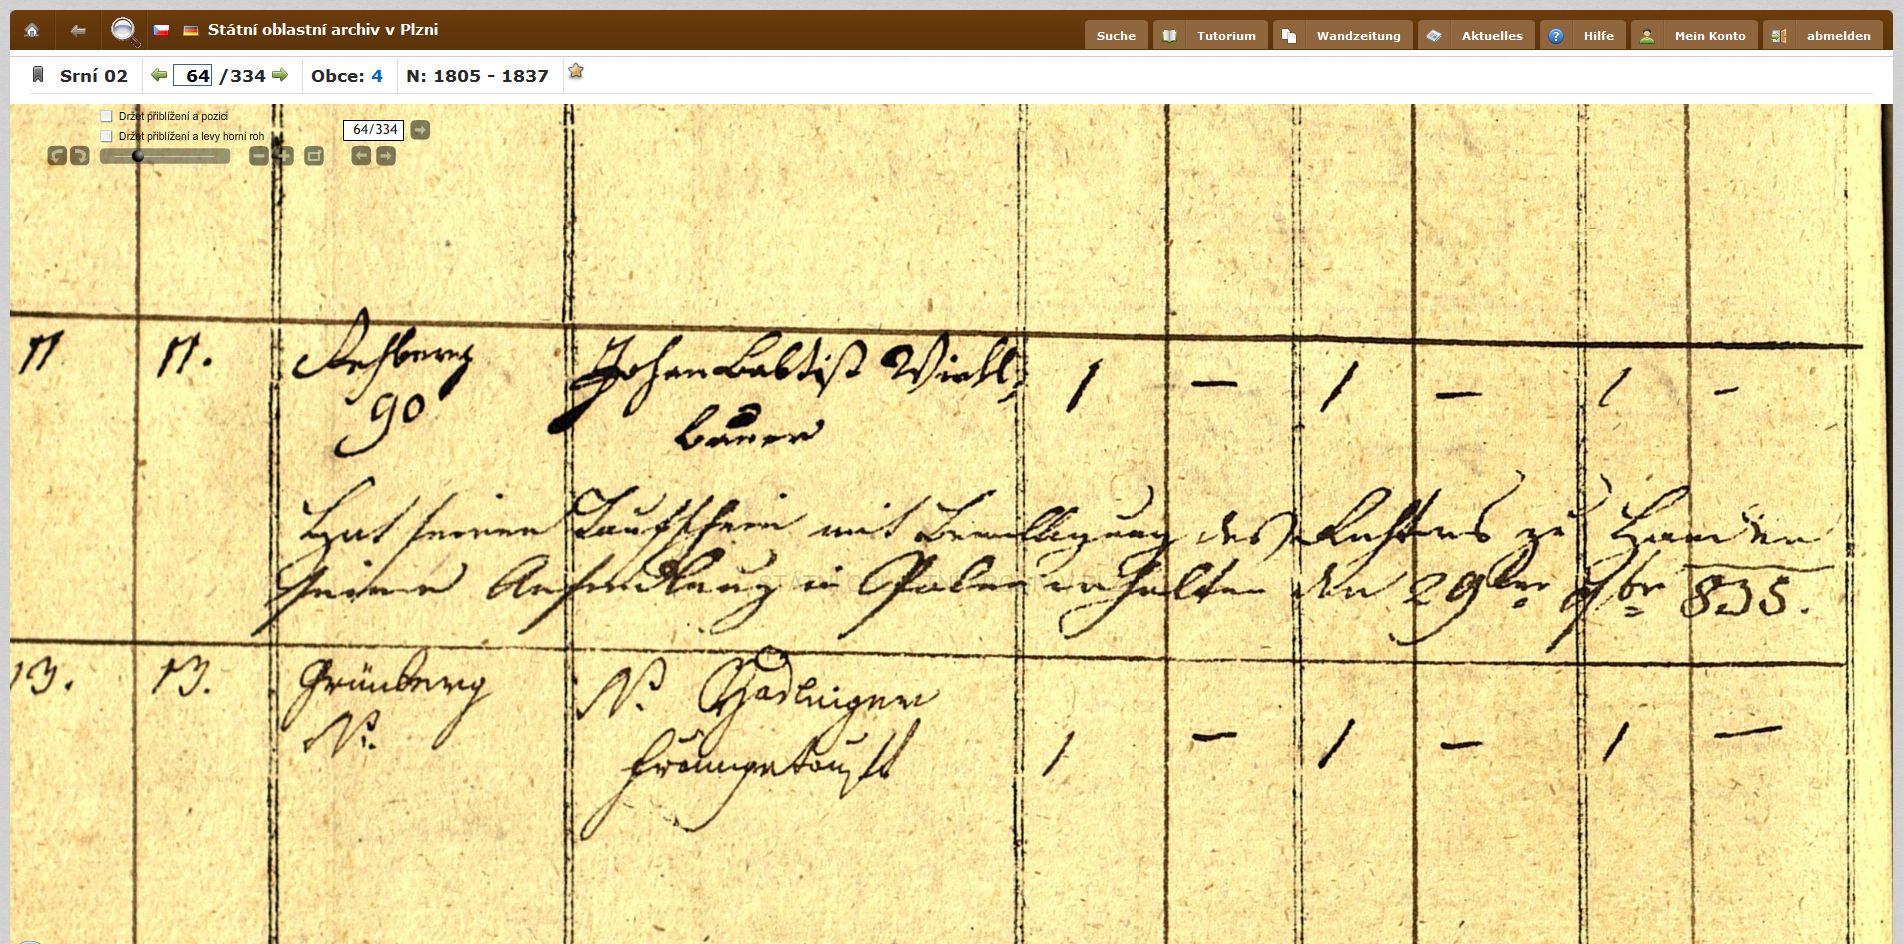 Státní oblastní archiv v Plzni
Suche
Tutorium
Wandzeitung
Aktuelles
Hilfe
Mein Konto
abmelden
Srní 02
64 /334
Obce: 4
N: 1805 - 1837
Držet přiblížení a pozici
Držet přiblížení a levy horni roh
64/334
11 11. Rehberg Johan Babtist 1 — 1 — 1 –
90 bauer
Hat seinen Taufschein mit Bewilligung des Richters zu Handen
seiner Ansiedlung in Polen erhalten den 29ten 9br 835.
13. 13. Grünberg N.
N. frauengetauft 1 — 1 — 1 —